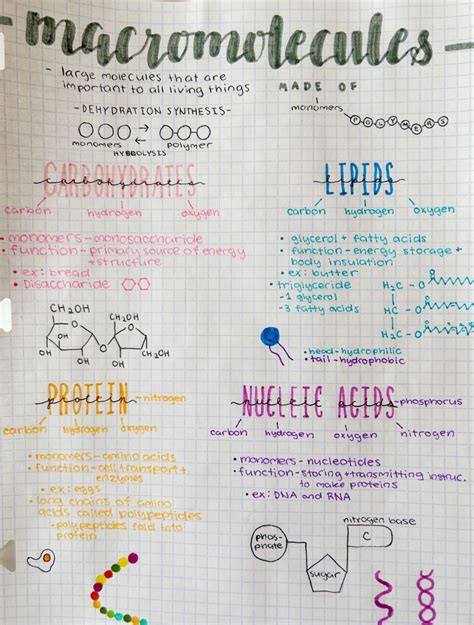 macromolecules
- large molecules that are
important to all living things
MADE OF
monomers
POLYMERS
- DEHYDRATION SYNTHESIS -
monomers
polymer
HYDROLYSIS
CARBOHYDRATES
carbohydrates
carbon hydrogen oxygen
• monomers - monosaccharide
• function - primary source of energy
+ structure
• ex: bread
• Disaccharide
CH₂OH
CH₂OH
O
O
OH
O
CH₂OH
OH
OH
OH
LIPIDS
lipids
carbon hydrogen oxygen
• glycerol + fatty acids
• function - energy storage +
body insulation
• ex: butter
• triglyceride
- 1 glycerol
- 3 fatty acids
H₂C - O
HC - O
H₂C - O
• head - hydrophilic
• tail - hydrophobic
PROTEIN
protein
- nitrogen
carbon hydrogen oxygen
• monomers - amino acids
• function - cell transport +
enzymes
• ex: eggs
• long chains of amino
acids called polypeptides
• polypeptides fold into
protein
NUCLEIC ACIDS
nucleic acids
- phosphorus
carbon hydrogen oxygen nitrogen
• monomers - nucleotides
• function - storing + transmitting instruc.
to make proteins
• ex: DNA and RNA
nitrogen base
C
phos-
phate
sugar